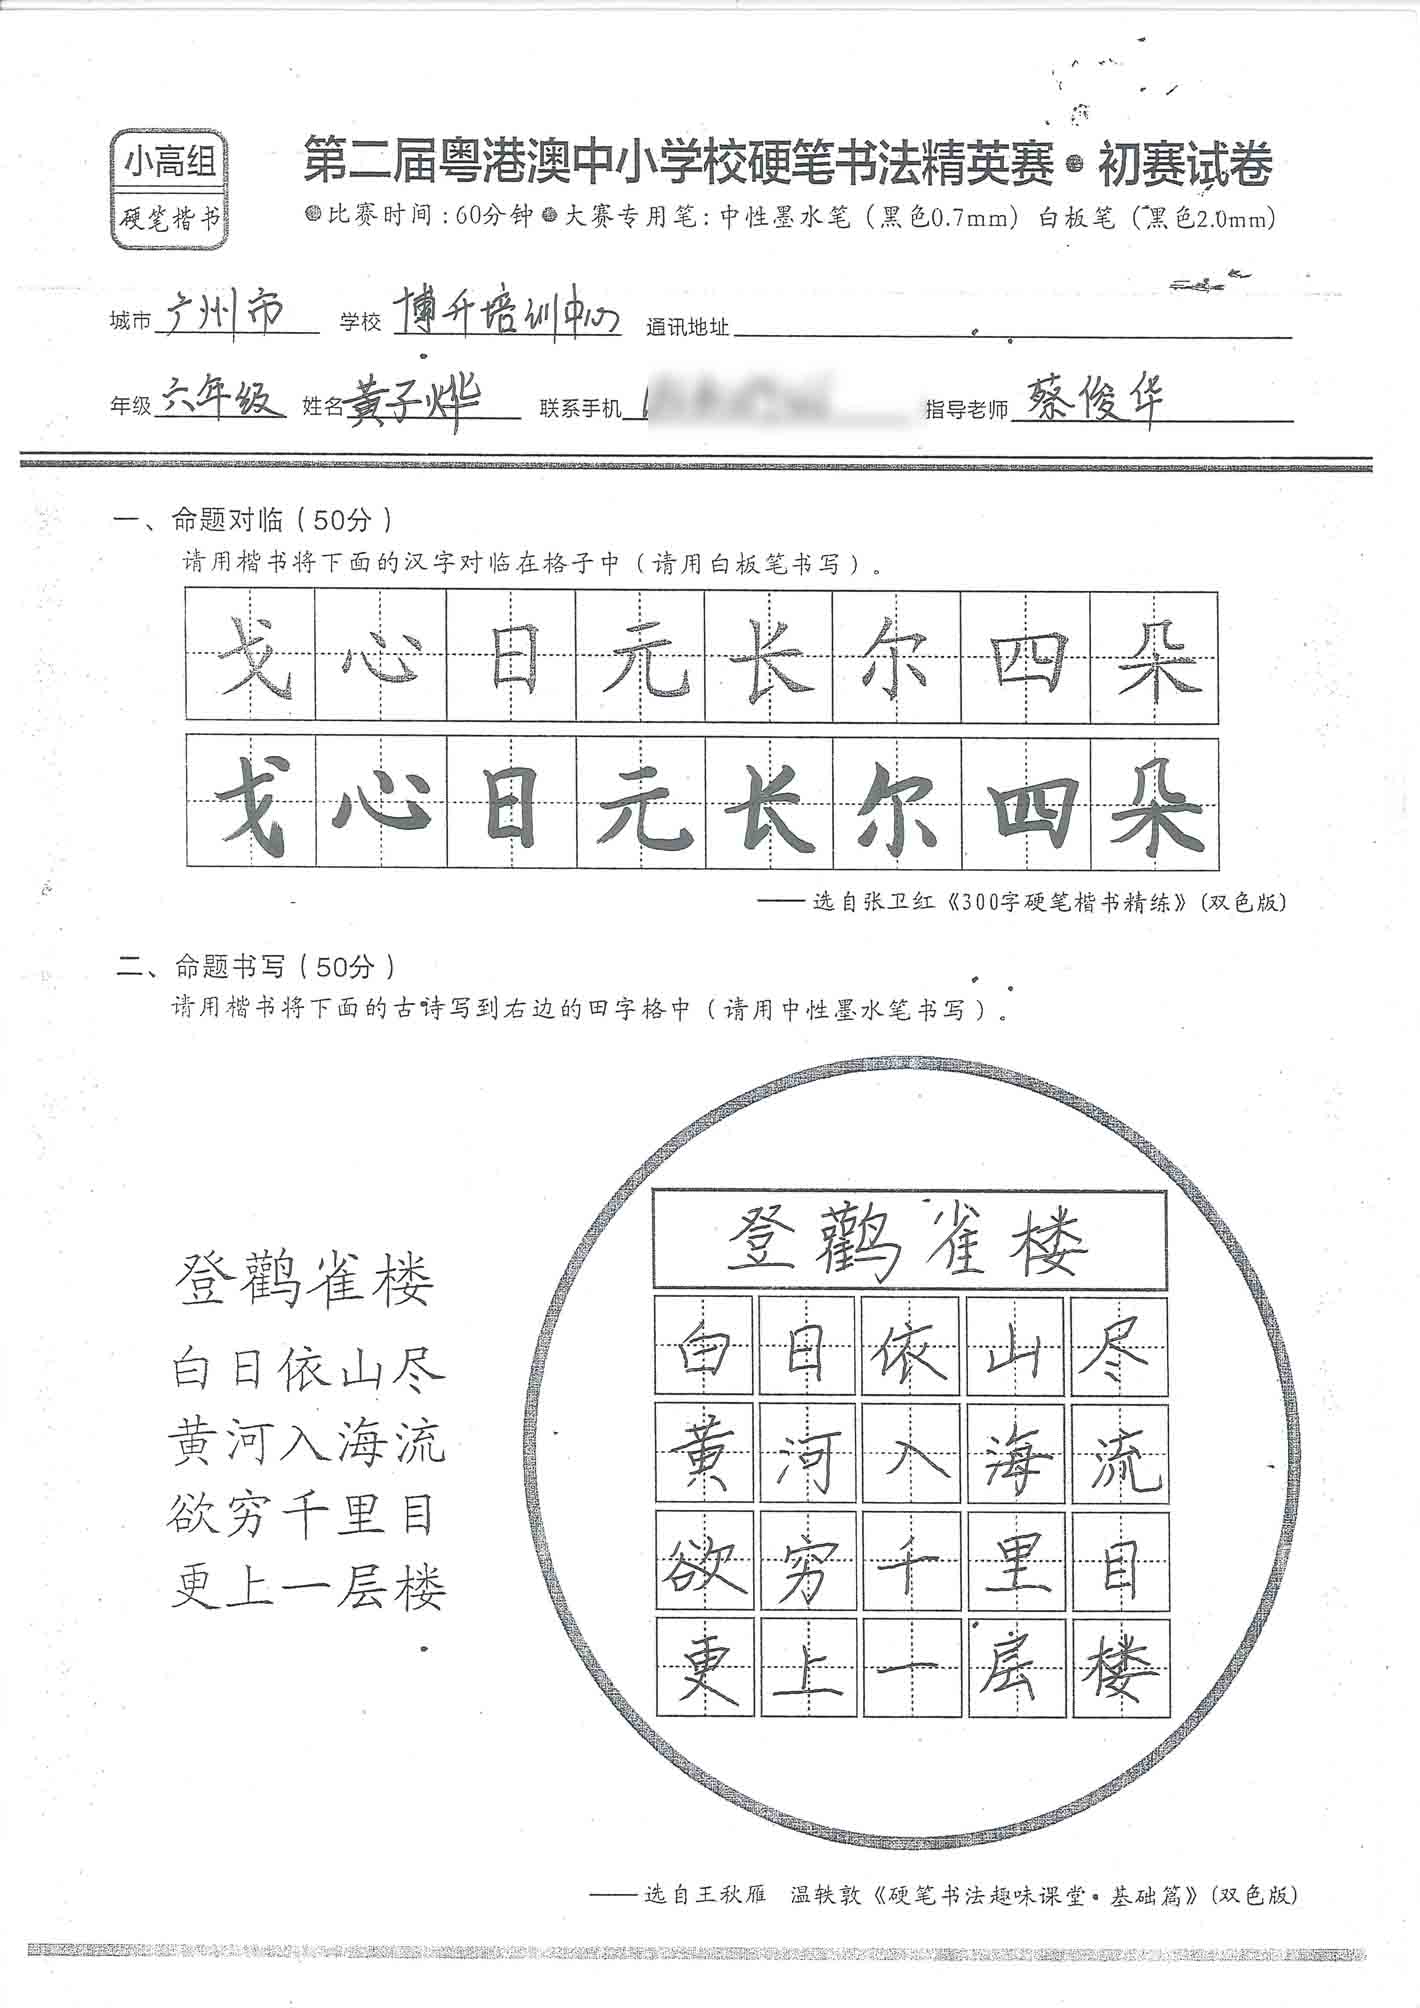 小高组
硬笔楷书
第二届粤港澳中小学校硬笔书法精英赛•初赛试卷
●比赛时间:60分钟●大赛专用笔:中性墨水笔(黑色0.7mm) 白板笔(黑色2.0mm)
城市 广州市 学校 博升培训中心 通讯地址
年级 六年级 姓名 黄子烨 联系手机 指导老师 蔡俊华
一、命题对临(50分)
请用楷书将下面的汉字对临在格子中(请用白板笔书写)。
戈心日元长尔四朵
戈心日元长尔四朵
——选自张卫红《300字硬笔楷书精练》(双色版)
二、命题书写(50分)
请用楷书将下面的古诗写到右边的田字格中(请用中性墨水笔书写)。
登鹳雀楼
白日依山尽
黄河入海流
欲穷千里目
更上一层楼
登鹳雀楼
白日依山尽
黄河入海流
欲穷千里目
更上一层楼
——选自王秋雁 温轶敦《硬笔书法趣味课堂·基础篇》(双色版)